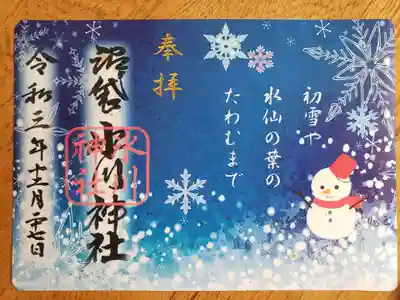 初雪や
水仙の葉の
たわむまで
奉拝
沼袋氷川神社
氷川神社
令和三年十二月二十七日